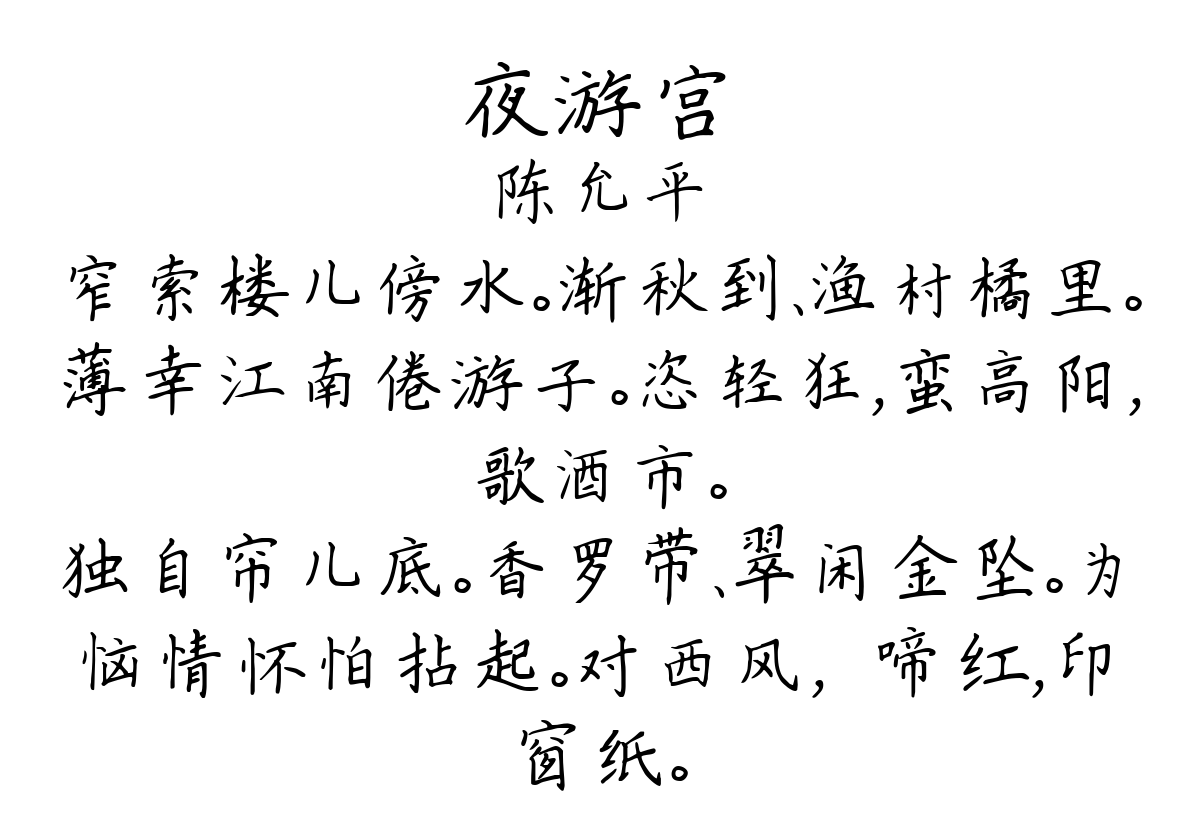 夜游宫
陈允平
窄索楼儿傍水。渐秋到、渔村橘里。
薄幸江南倦游子。恣轻狂,蛮高阳,
歌酒市。
独自帘儿底。香罗带、翠闲金坠。为
恼情怀怕拈起。对西风,啼红,印
窗纸。